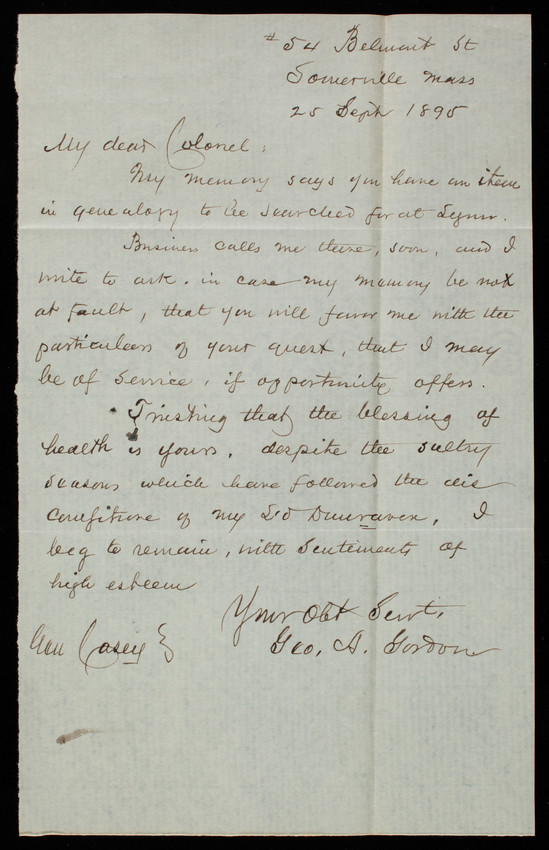 # 54 Belmont St
Somerville Mass
25 Sept 1895
My dear Colonel:
My memory says you have an item
in genealogy to be searched for at Lynn.
Business calls me there, soon, and I
write to ask. in case my memory be not
at fault, that you will favor me with the
particulars of your quest, that I may
be of service, if opportunity offers.
Trusting that the blessing of
health is yours, despite the sultry
seasons which have followed the dis
comfiture of my Ld Dunraven, I
beg to remain, with sentiments of
high esteem
Your Obt Servt,
Geo. A. Gordon
Gen Casey }